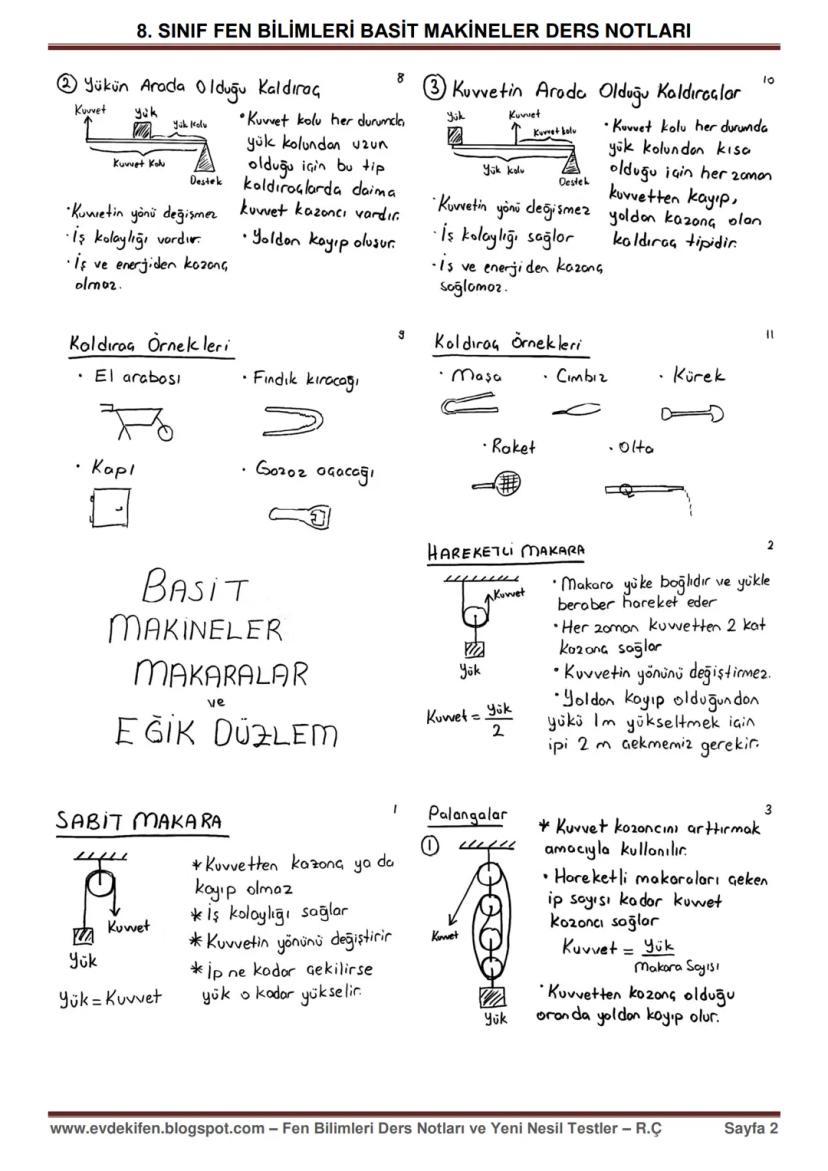 8. SINIF FEN BİLİMLERİ BASİT MAKİNELER DERS NOTLARI
8
② Yükün Arada Olduğu Kaldıraç
Kuvvet
Yük
Yük Kolu
Kuvvet Kolu
Destek
• Kuvvet kolu her durumda
yük kolundan uzun
olduğu için bu tip
kaldıraçlarda daima
kuvvet kazancı vardır.
• Yoldan kayıp oluşur.
• Kuvvetin yönü değişmez
• İş kolaylığı vardır.
• İş ve enerjiden kazanç
olmaz.
10
③ Kuvvetin Arada Olduğu Kaldıraçlar
Yük
Kuvvet
Kuvvet kolu
Yük kolu
Destek
• Kuvvet kolu her durumda
yük kolundan kısa
olduğu için her zaman
kuvvetten kayıp,
yoldan kazanç olan
kaldıraç tipidir.
• Kuvvetin yönü değişmez
• İş kolaylığı sağlar
• İş ve enerjiden kazanç
sağlamaz.
9
Kaldıraç Örnekleri
• El arabası
• Fındık kıracağı
• Kapı
• Gazoz açacağı
11
Kaldıraç Örnekleri
• Maşa
• Cımbız
• Kürek
• Raket
• Olta
BASİT
MAKİNELER
MAKARALAR
ve
EĞİK DÜZLEM
2
HAREKETLİ MAKARA
Kuvvet
Yük
Kuvvet = Yük
2
• Makara yüke bağlıdır ve yükle
beraber hareket eder
• Her zaman kuvvetten 2 kat
kazanç sağlar
• Kuvvetin yönünü değiştirmez.
• Yoldan kayıp olduğundan
yükü 1m yükseltmek için
ipi 2 m çekmemiz gerekir.
1
SABİT MAKARA
Kuvvet
Yük
Yük = Kuvvet
* Kuvvetten kazanç ya da
kayıp olmaz
* İş kolaylığı sağlar
* Kuvvetin yönünü değiştirir
* İp ne kadar çekilirse
yük o kadar yükselir.
3
Palangalar
①
Kuvvet
Yük
* Kuvvet kazancını arttırmak
amacıyla kullanılır.
• Hareketli makaraları çeken
ip sayısı kadar kuvvet
kazancı sağlar
Kuvvet = Yük
Makara Sayısı
• Kuvvetten kazanç olduğu
oranda yoldan kayıp olur.
www.evdekifen.blogspot.com – Fen Bilimleri Ders Notları ve Yeni Nesil Testler – R.Ç
Sayfa 2